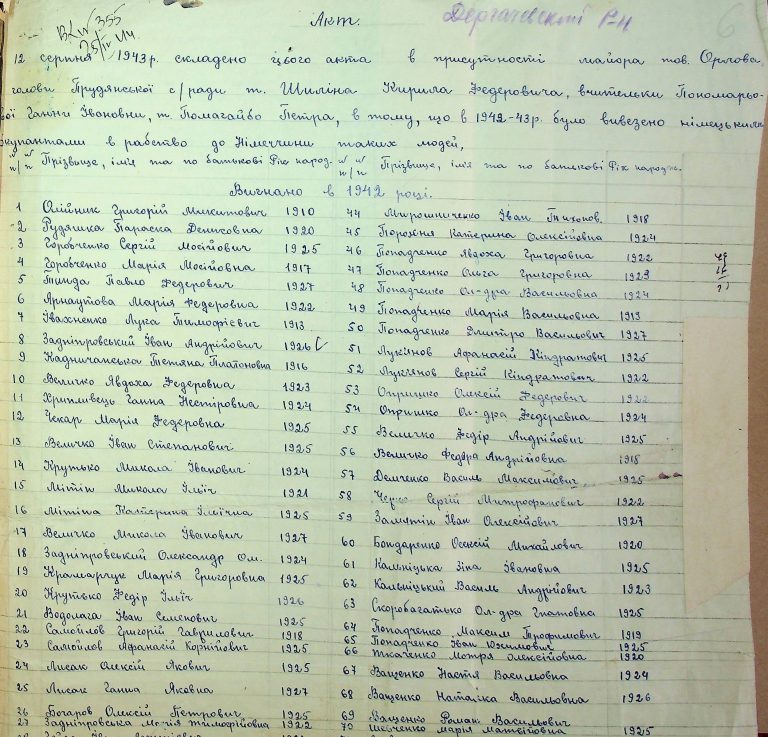 Акт.
Дергачевский р-н
6
12 серпня 1943р. складено цього акта в присутності майора тов. Орлова
голови Прудянської с/ради т. Шиліна Кирила Федеровича, вчительки Пономарьо-
вої Ганни Івановни, т. Помагайбо Петра, в тому, що в 1942-43р. було вивезено німецькими
окупантами в рабство до Німеччини таких людей,
№ п/п Прізвище, ім'я та по батькові Рік народ. № п/п Прізвище, ім'я та по батькові Рік народж.
Вигнано в 1942 році.
1 Олійник Григорій Микитович 1910
2 Рудяшка Параска Денисовна 1920
3 Горовченко Сергій Мосійович 1925
4 Горовченко Марія Мосійовна 1917
5 Тинда Павло Федерович 1927
6 Ярнаутова Марія Федеровна 1922
7 Івахненко Лука Тимофієвич 1913
8 Задніпровський Іван Андрійович 1926
9 Кадничанська Тетяна Платоновна 1916
10 Величко Явдоха Федеровна 1923
11 Хрипливець Ганна Нестіровна 1924
12 Чекар Марія Федеровна 1925
13 Величко Іван Степанович 1925
14 Крутько Микола Іванович 1924
15 Мітін Микола Ілліч 1921
16 Мітіна Катерина Іллічна 1925
17 Величко Микола Іванович 1927
18 Задніпровський Олександр Ом. 1924
19 Крамарчук Марія Григоровна 1925
20 Крутько Федір Ілліч 1926
21 Водолага Іван Семенович 1925
22 Самойлов Григорій Гаврилович 1918
23 Самойлов Афанасій Корнійович 1925
24 Лисак Олексій Якович 1925
25 Лисак Ганна Яковна 1927
26 Бочаров Олексій Петрович 1925
27 Задніпровська Марія Тимофійовна 1922
44 Мирошниченко Іван Тихонов. 1918
45 Порожня Катерина Олексійовна 1924
46 Попадченко Явдоха Григоровна 1922
47 Попадченко Ольга Григоровна 1923
48 Попадченко Ол-дра Васильовна 1924
49 Попадченко Марія Васильовна 1913
50 Попадченко Дмитро Васильович 1927
51 Лук'янов Афанасій Кіндратович 1925
52 Лук'янов Сергій Кіндратович 1922
53 Опришко Олексій Федерович 1922
54 Опришко Ол-дра Федеровна 1924
55 Величко Федір Андрійович 1925
56 Величко Федора Андрійовна 1918
57 Демченко Василь Максимович 1925
58 Сергій Митрофанович 1922
59 Замятін Іван Олексійович 1927
60 Бондаренко Олексій Михайлович 1920
61 Кальніцька Зіна Івановна 1925
62 Кальніцький Василь Андрійович 1923
63 Скоробагатько Ол-дра Гнатовна 1925
64 Попадченко Максим Трофимович 1919
65 Попадченко Іван Юхимович 1925
66 Ткаченко Мотря Олексійовна 1920
67 Ващенко Настя Васильовна 1924
68 Ващенко Наталка Васильовна 1926
69 Ващенко Роман Васильович
70 Шевченко Марія Матвійовна 1925